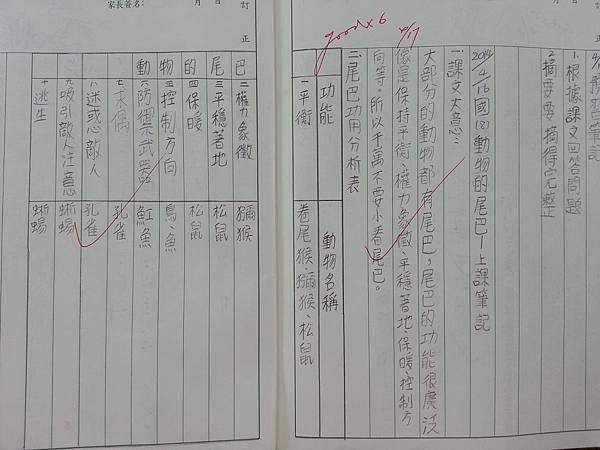 訂正
日
good x6
4/17
1.根據課文回答問題
2.摘要要摘得完整
2014/4/16國(8)動物的尾巴—上課筆記
一、課文大意:
大部分的動物都有尾巴,尾巴的功能很廣泛
像是保持平衡、權力象徵、平穩著地、保暖、控制方
向等。所以千萬不要小看尾巴。
二、尾巴功用分析表
功能 動物名稱
一平衡 卷尾猴、獼猴、松鼠
訂正
日
月
家長簽名:
動物的尾巴
二權力象徵 獼猴
三平穩著地 松鼠
四保暖 松鼠
五控制方向 鳥、魚
六防禦武器 魟魚
七求偶 孔雀
八迷惑敵人 孔雀
九吸引敵人注意 蜥蜴
十逃生 蜥蜴